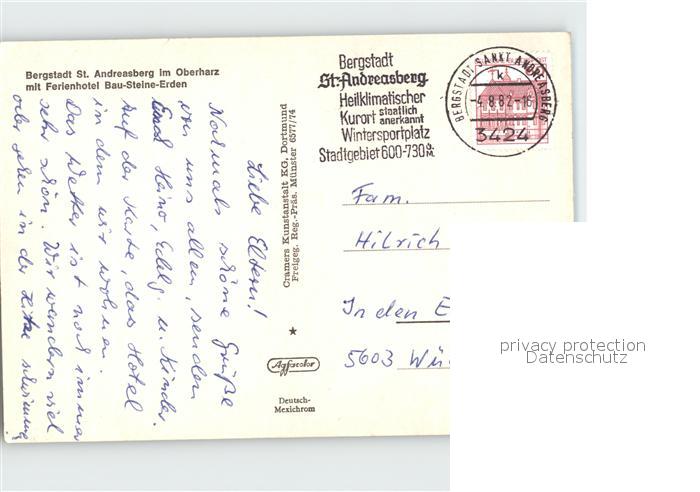 Bergstadt St. Andreasberg im Oberharz
mit Ferienhotel Bau-Steine-Erden
Liebe Eltern!
Nochmals schöne Grüße
von uns allen, senden
Euch Heino, u. Kinder.
Auf der Karte, das Hotel
in dem wir wohnen.
Das Wetter ist noch immer
sehr schön. Wir wandern viel
oder gehen in der Hitze schwimmen
Cramers Kunstanstalt KG. Dortmund
Freigeg. Reg.-Präs. Münster 6577/74
Agfacolor
Deutsch-
Mexichrom
Bergstadt
St. Andreasberg
Heilklimatischer
Kurort staatlich anerkannt
Wintersportplatz
Stadtgebiet 600-730 ü.M.
BERGSTADT SANKT ANDREASBERG
k
-4.8.82-16
3424
Fam.
Hilrich
In den E
5603 Wü
privacy protection
Datenschutz